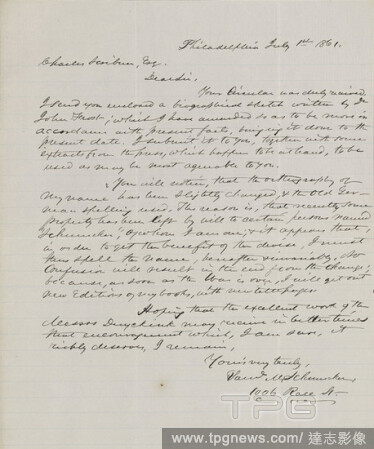 Philadelphia July 1st 1861.
Charles Scribner, Esq.
Dear Sir,
Your Circular was duly received.
I send you enclosed a biographical sketch written by Dr
John Frost; which I have amended so as to be more in
accordance with present facts, bringing it down to the
present date. I submit it to you, together with some
extracts from the press, which happen to be at hand, to be
used as may be most agreeable to you.
You will notice, that the orthography of
my name has been slightly changed, & the Old Ger-
man spelling used. The reason is, that recently some
property has been left by will to certain persons named
"Schmucker", of whom I am one; & it appears that,
in order to get the benefit of the devise, I must
thus spell the name, hereafter invariably. No
Confusion will result in the end from the change;
because, as soon as the war is over, I will get out
new Editions of my books, with new title pages.
Hoping that the excellent work of the
Messrs Duyckinck may receive in better times
that encouragement which, I am sure, it
richly deserves, I remain,
Yours very truly,
Saml. M. Schmucker,
1006 Race St.
TPG
www.tpgnews.com / 達志影像